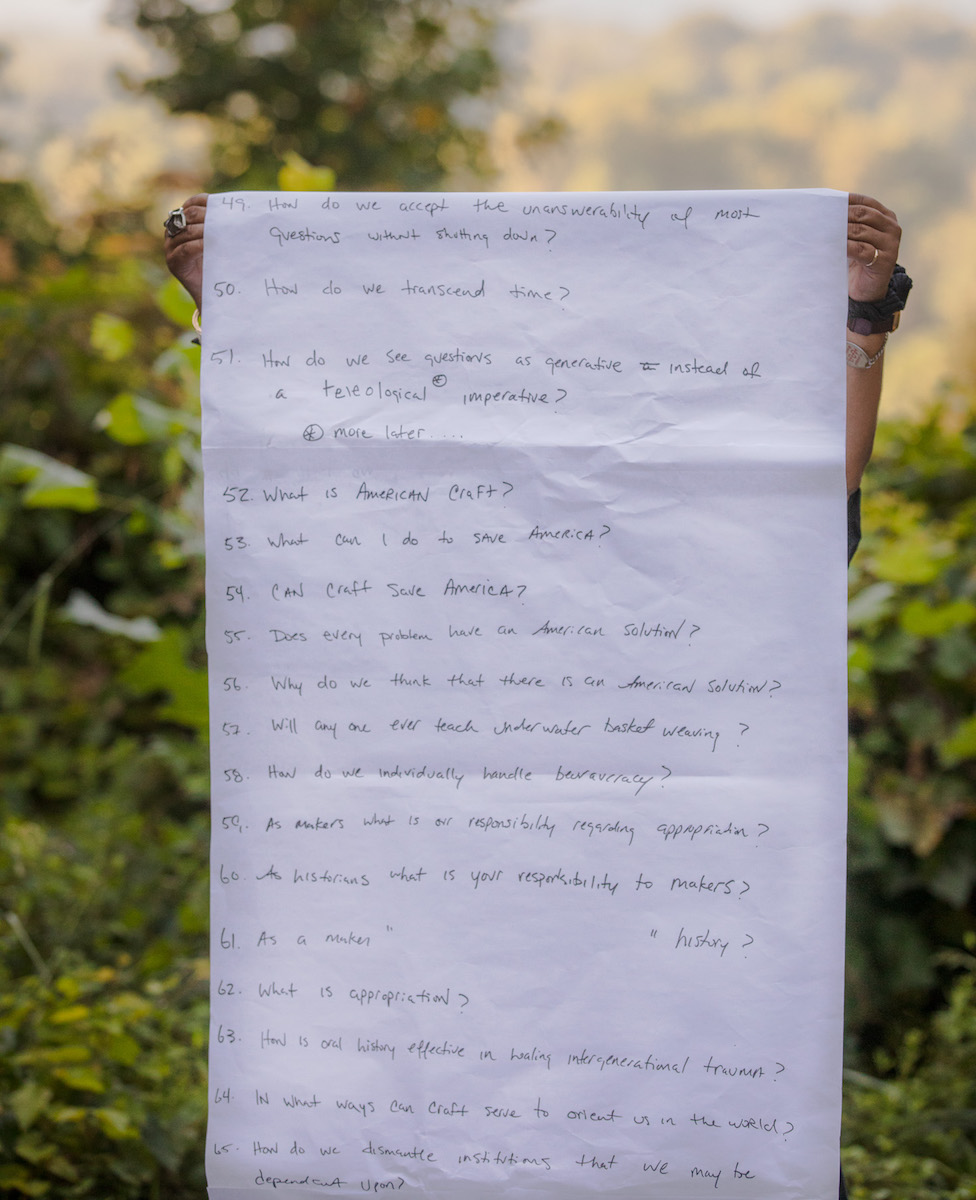 49. How do we accept the unanswerability of most
questions without shutting down?
50. How do we transcend time?
51. How do we see questions as generative instead of
a teleological * imperative?
* more later....
52. What is AMERICAN Craft?
53. What can I do to SAVE AMERICA?
54. CAN Craft Save AMERICA?
55. Does every problem have an American solution?
56. Why do we think that there is an American solution?
57. Will any one ever teach underwater basket weaving?
58. How do we individually handle beuraucracy?
59. As makers what is our responsibility regarding appropriation?
60. As historians what is your responsibility to makers?
61. As a maker " " history?
62. What is appropriation?
63. How is oral history effective in healing intergenerational trauma?
64. IN what ways can craft serve to orient us in the world?
65. How do we dismantle institutions that we may be
dependent upon?